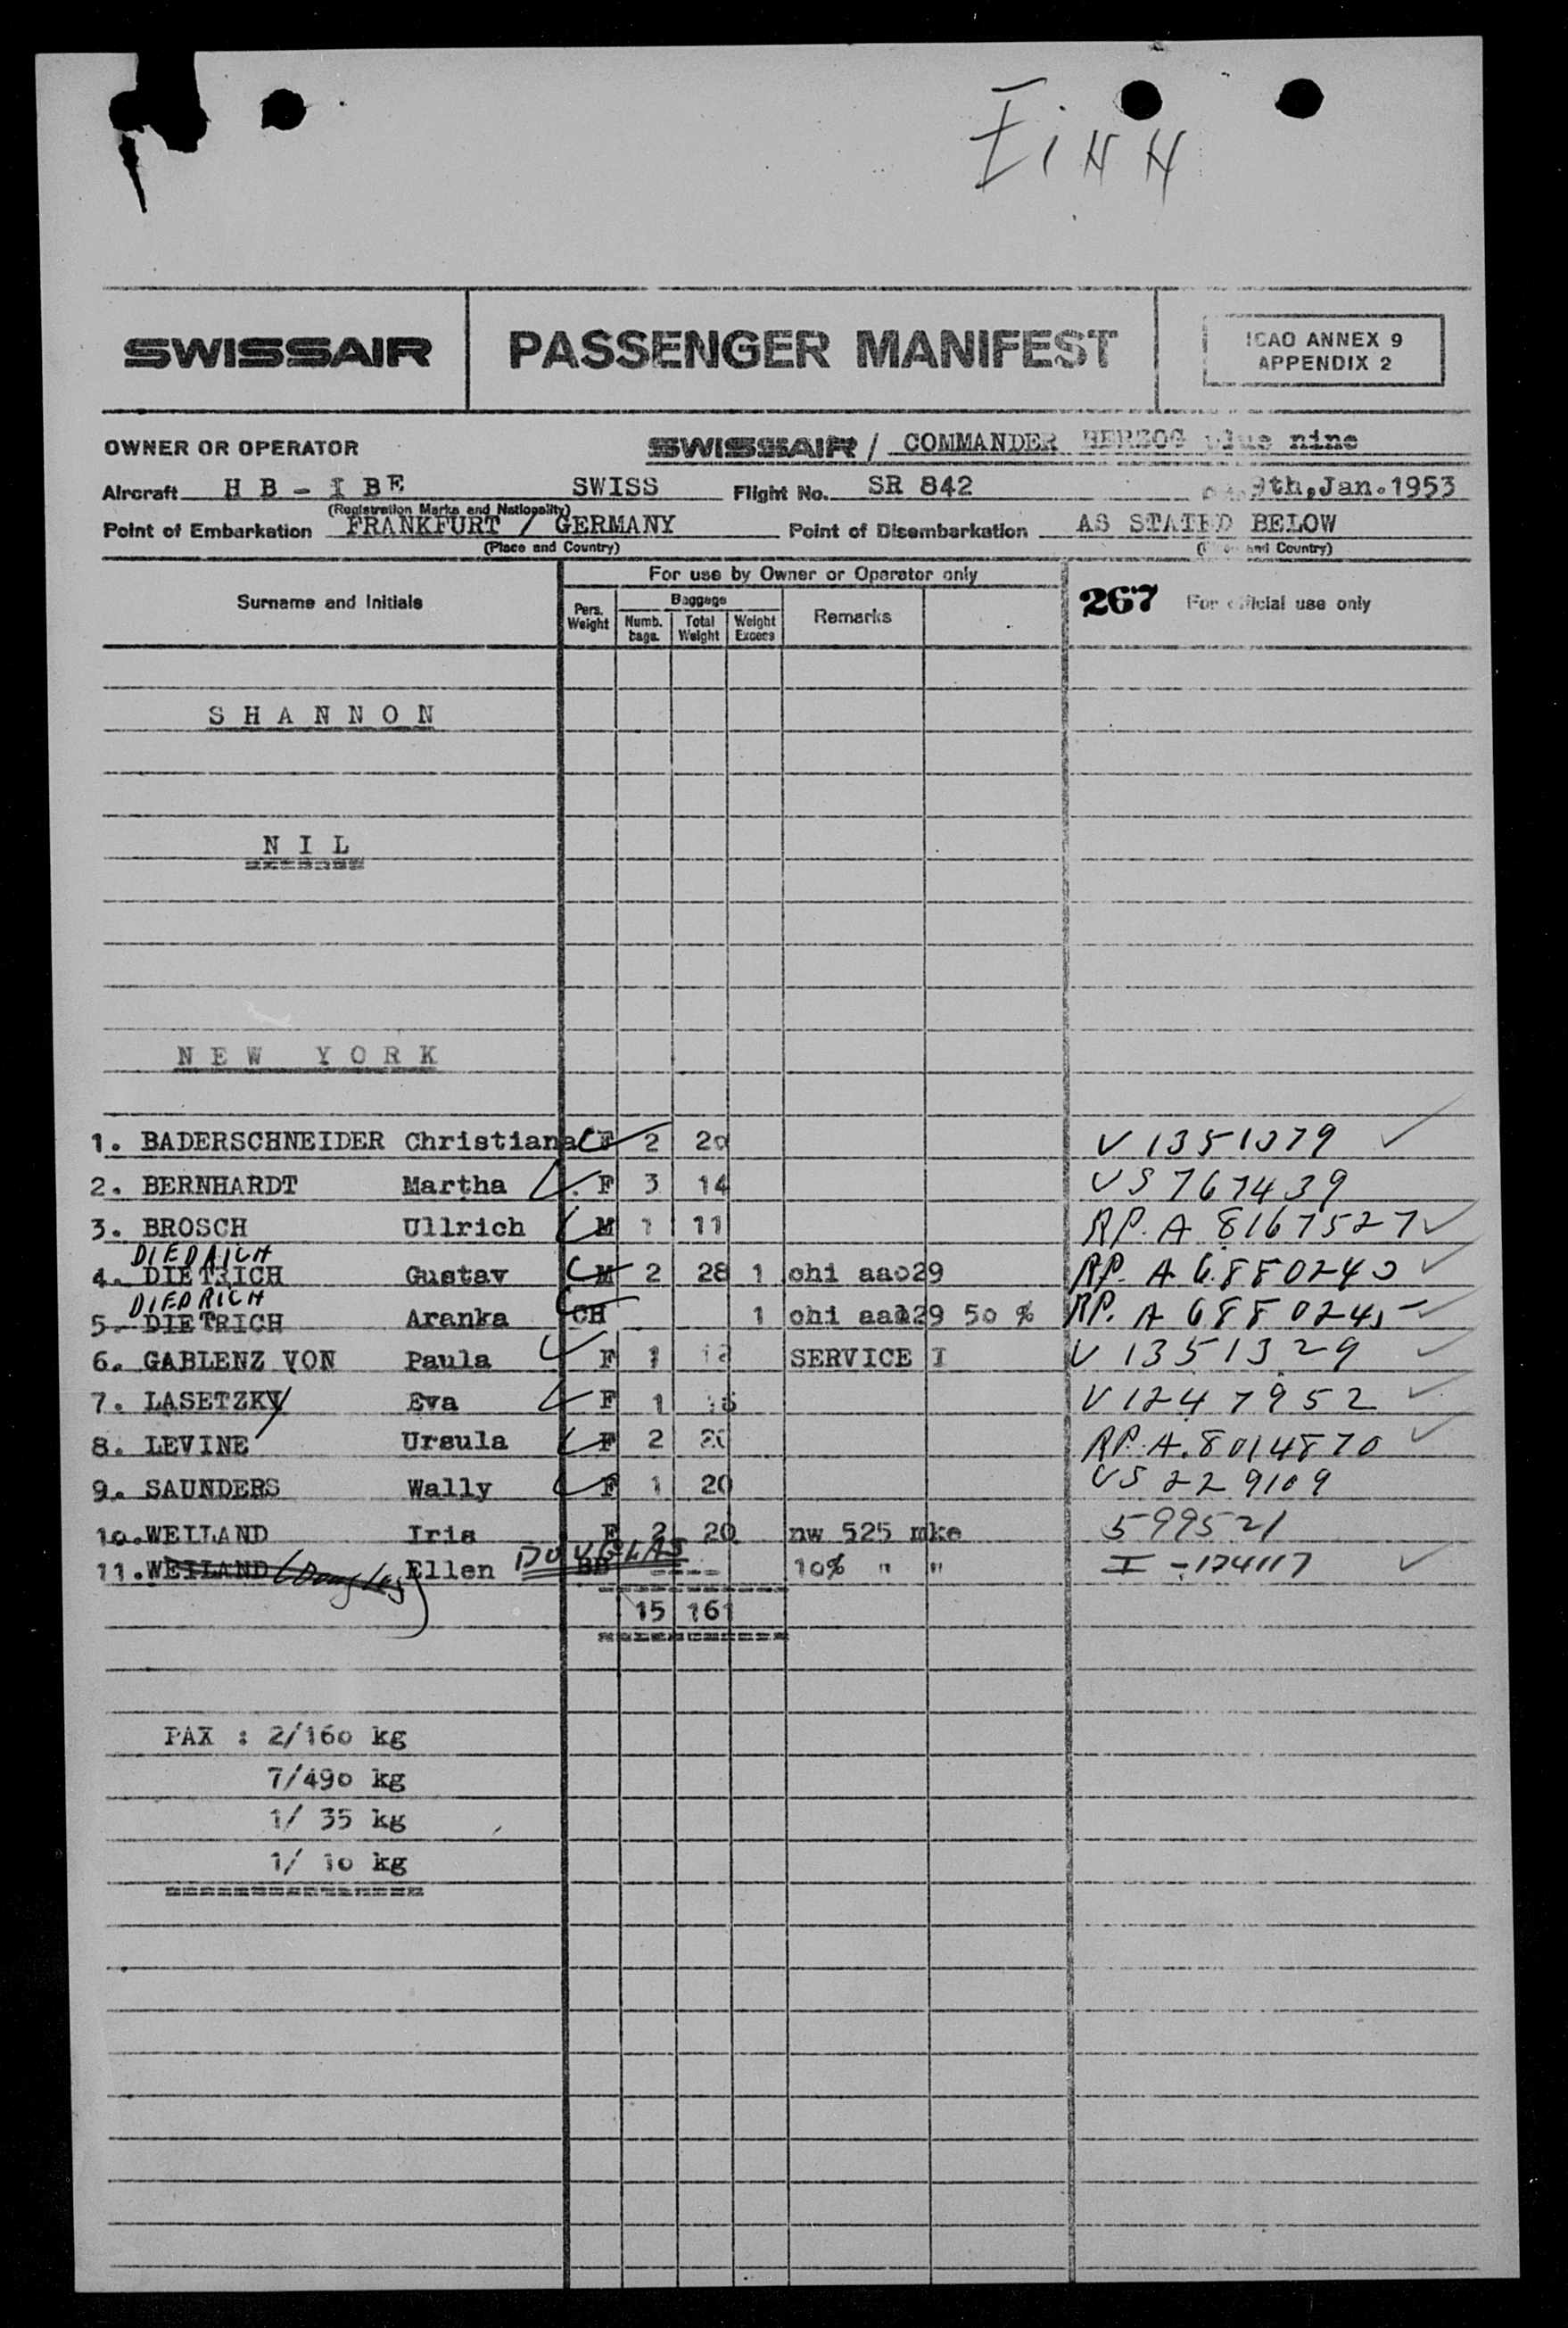 SWISSAIR PASSENGER MANIFEST ICAO ANNEX 9
APPENDIX 2
OWNER OR OPERATOR SWISSAIR / COMMANDER HERZOG plus nine
Aircraft H B - I BE SWISS Flight No. SR 842 9th,Jan.1953
(Registration Marks and Nationality)
Point of Embarkation FRANKFURT / GERMANY Point of Disembarkation AS STATED BELOW
(Place and Country) (Place and Country)
For use by Owner or Operator only
Surname and Initials Pers. Weight Baggage Numb. bags. Total Weight Weight Excess Remarks 267 For official use only
S H A N N O N
N I L
N E W Y O R K
1. BADERSCHNEIDER Christiana F 2 20 V 1351079
2. BERNHARDT Martha F 3 14 US 767439
3. BROSCH Ullrich M 1 11 RP. A 8167527
DIEDRICH
4. DIETRICH Gustav M 2 28 1 chi aao29 RP. A 6880240
DIEDRICH
5. DIETRICH Aranka CH 1 chi 50 % RP. A
6. GABLENZ VON Paula F 1 SERVICE I V 1351329
7. LASETZKY Eva F 1 V 1247952
8. LEVINE Ursula F 2 20 RP. A. 8014870
9. SAUNDERS Wally F 1 20 US 229109
10. WEILAND Iris F 2 20 nw 525 mke 599521
11. WEILAND (Douglas) Ellen DOUGLAS BB ---- 10% " " I - 124117
15 161
PAX : 2/160 kg
7/490 kg
1/ 35 kg
1/ 10 kg